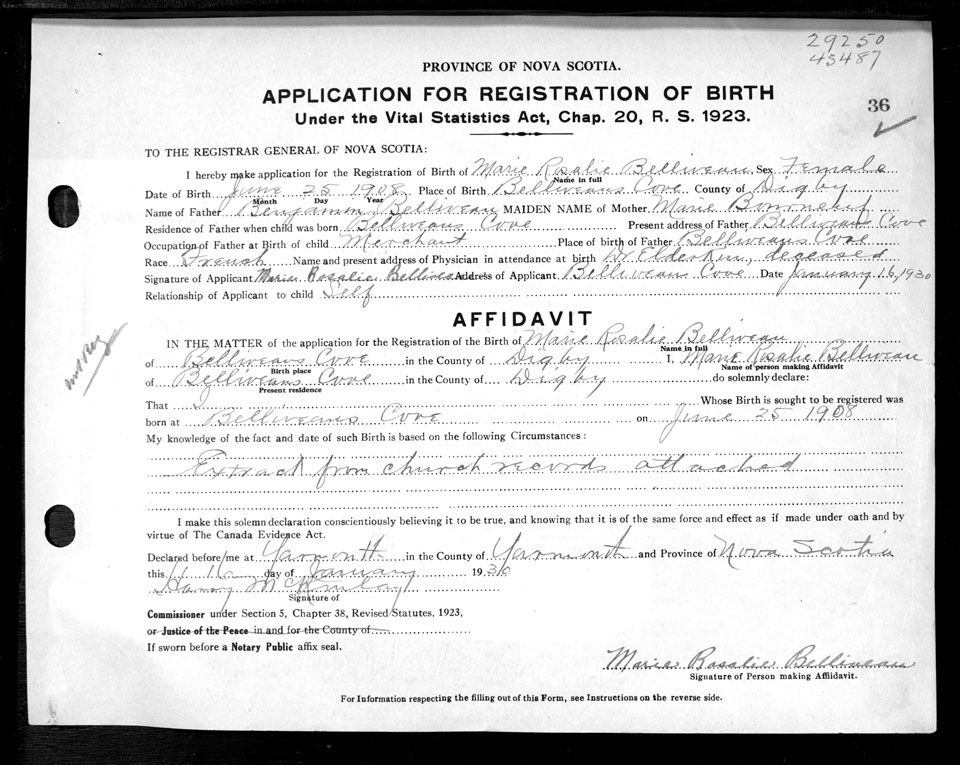 29250
45487
PROVINCE OF NOVA SCOTIA.
APPLICATION FOR REGISTRATION OF BIRTH
36
Under the Vital Statistics Act, Chap. 20, R. S. 1923.
TO THE REGISTRAR GENERAL OF NOVA SCOTIA:
I hereby make application for the Registration of Birth of Marie Rosalie Belliveau Sex Female
Name in full
Date of Birth June 25 1908 Place of Birth Belliveaus Cove County of Digby
Month Day Year
Name of Father Benjamin Belliveau MAIDEN NAME of Mother Marie
Residence of Father when child was born Belliveaus Cove Present address of Father Belliveaus Cove
Occupation of Father at Birth of child Merchant Place of birth of Father Belliveaus Cove
Race French Name and present address of Physician in attendance at birth Dr Elderkin, deceased
Signature of Applicant Marie Rosalie Belliveau Address of Applicant Belliveaus Cove Date January 16, 1930
Relationship of Applicant to child Self
AFFIDAVIT
IN THE MATTER of the application for the Registration of the Birth of Marie Rosalie Belliveau
Name in full
of Belliveaus Cove in the County of Digby I, Marie Rosalie Belliveau
Birth place Name of person making Affidavit
of Belliveaus Cove in the County of Digby do solemnly declare:
Present residence
That I Whose Birth is sought to be registered was
born at Belliveaus Cove on June 25 1908
My knowledge of the fact and date of such Birth is based on the following Circumstances:
Extract from church records attached
I make this solemn declaration conscientiously believing it to be true, and knowing that it is of the same force and effect as if made under oath and by
virtue of The Canada Evidence Act.
Declared before me at Yarmouth in the County of Yarmouth and Province of Nova Scotia
this 16 day of January 1930
Harry
Signature of
Commissioner under Section 5, Chapter 38, Revised Statutes, 1923,
or Justice of the Peace in and for the County of
If sworn before a Notary Public affix seal.
Marie Rosalie Belliveau
Signature of Person making Affidavit.
For Information respecting the filling out of this Form, see Instructions on the reverse side.